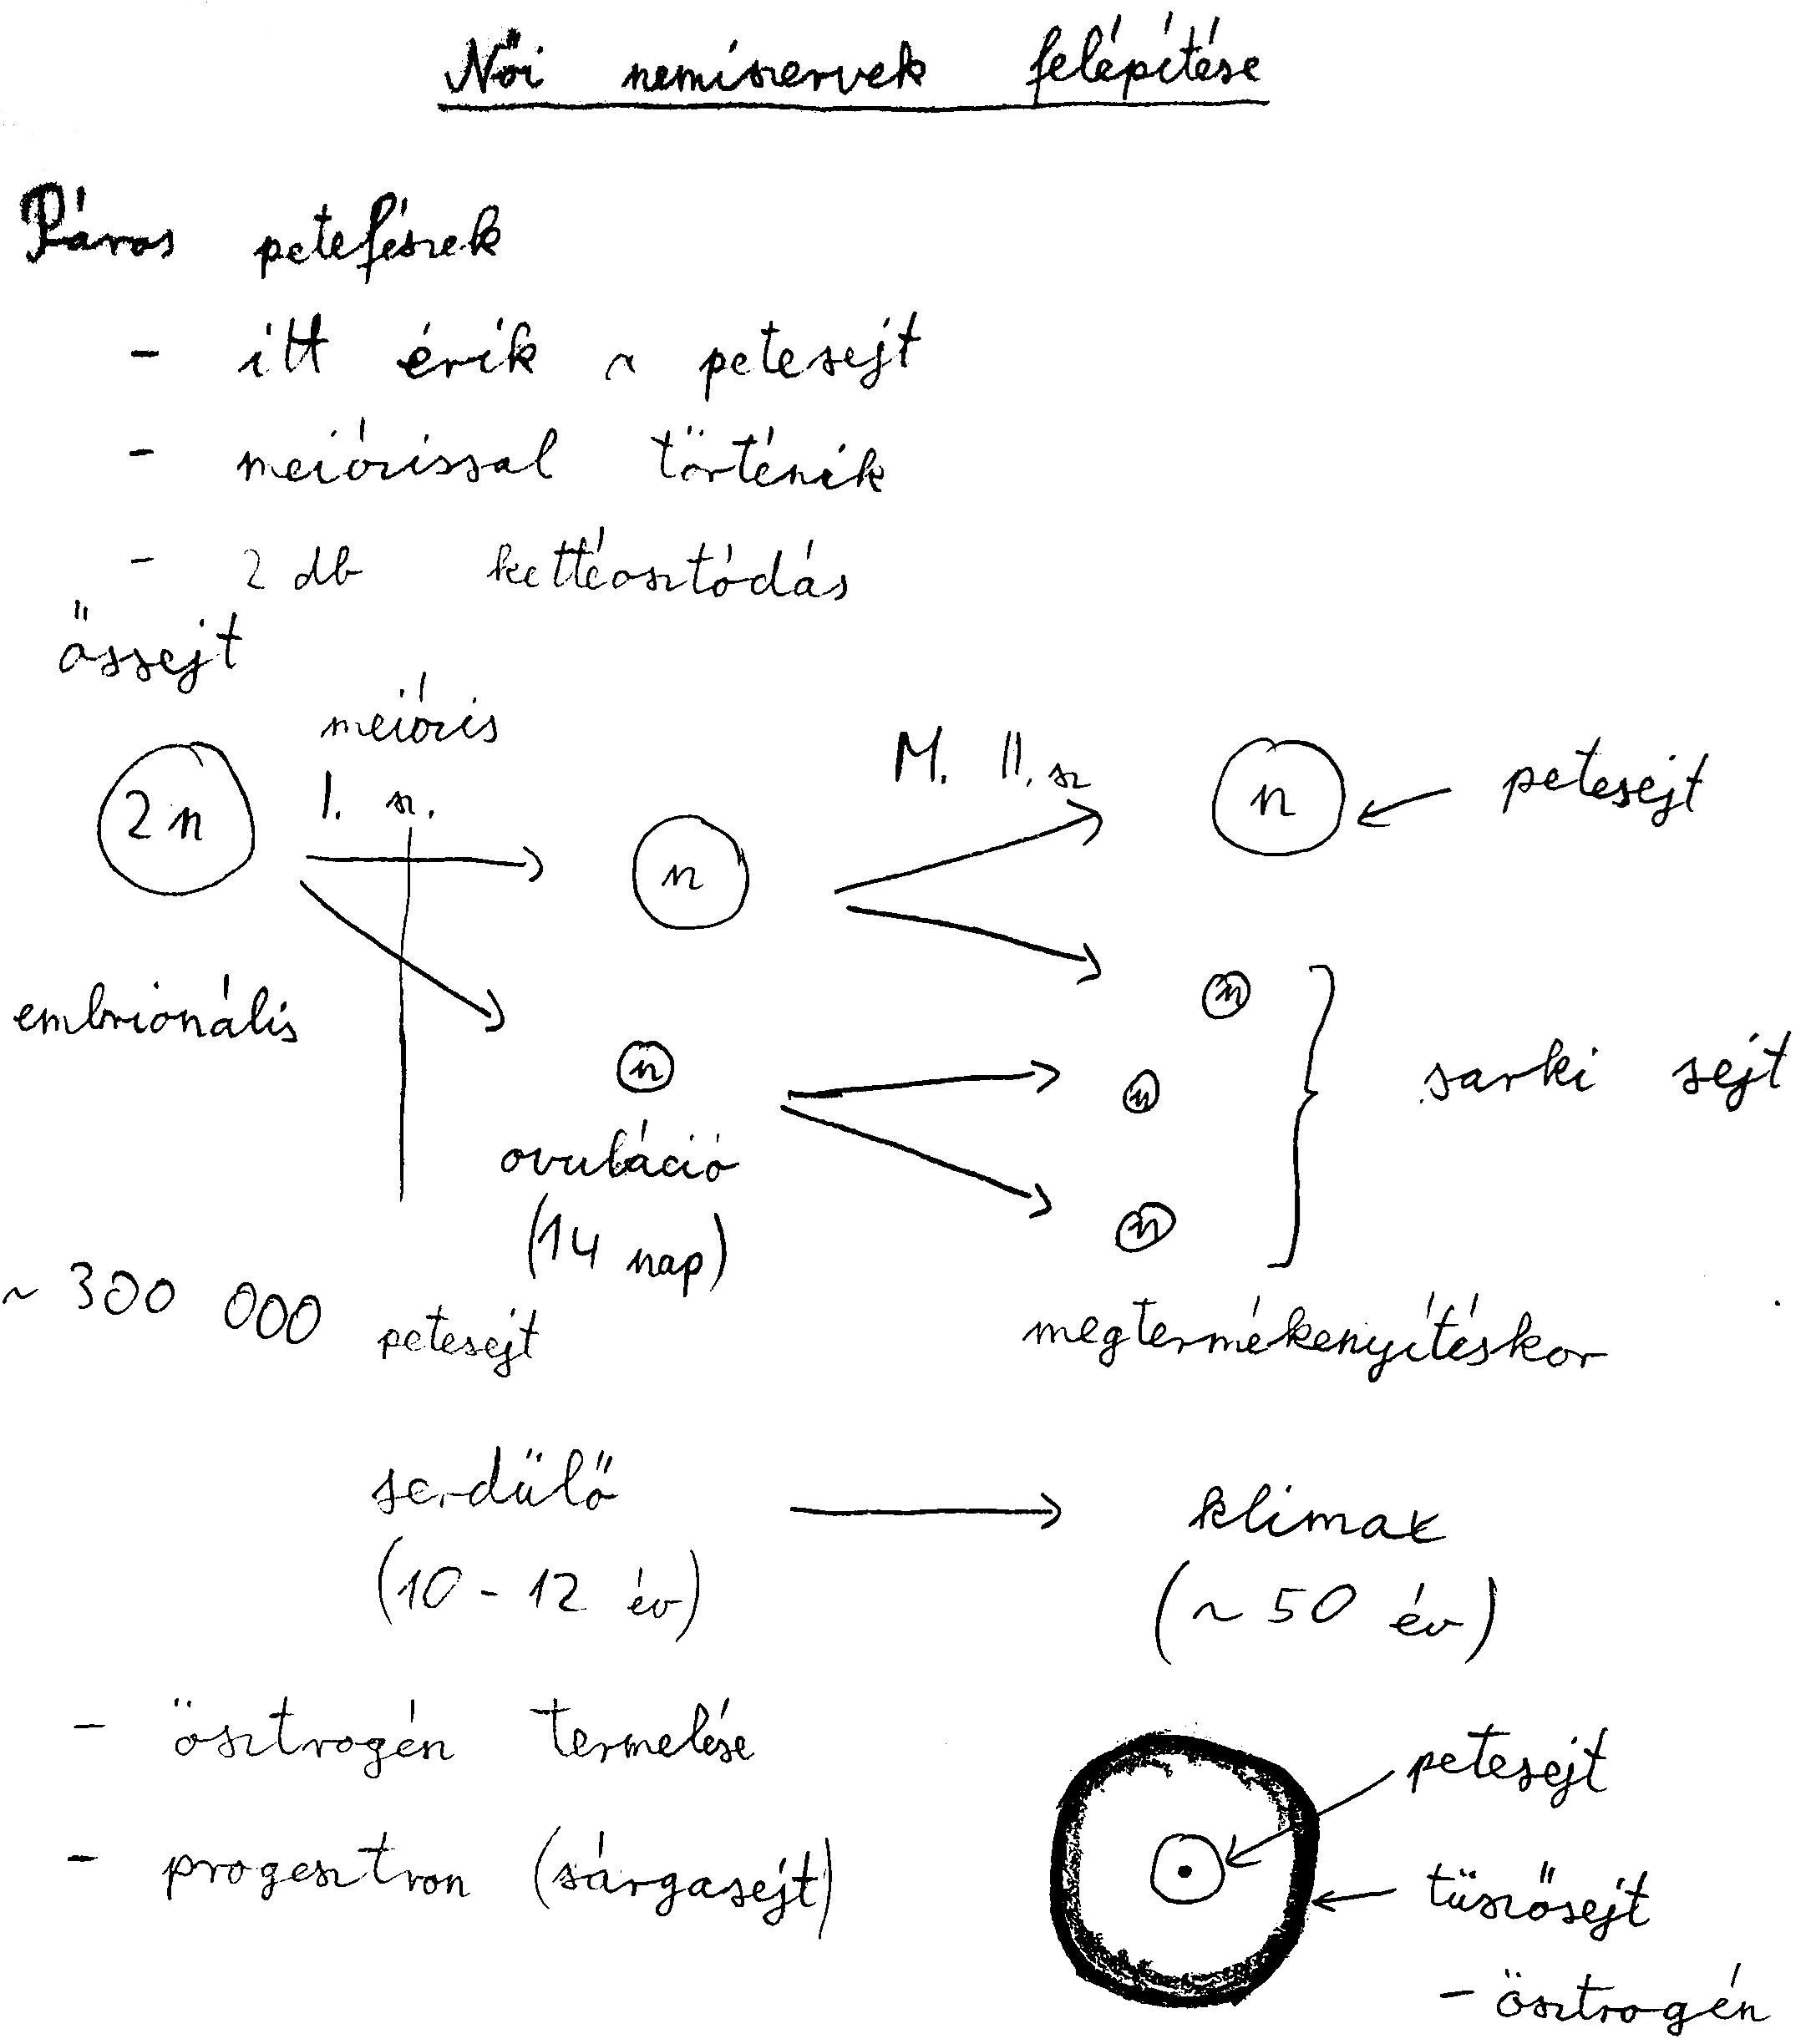 Női nemiszervek felépítése
Páros petefészek
- itt érik a petesejt
- meiózissal történik
- 2 db kettéosztódás
őssejt
meiózis
I. sz.
M. II. sz
2n
n
n
petesejt
embrionális
n
n
n
n
sarki sejt
ovuláció
(14 nap)
~ 300 000 petesejt
megtermékenyítéskor
serdülő
klimax
(10 - 12 év)
(~ 50 év)
- ösztrogén termelése
- progesztron (sárgasejt)
petesejt
tüszősejt
- ösztrogén